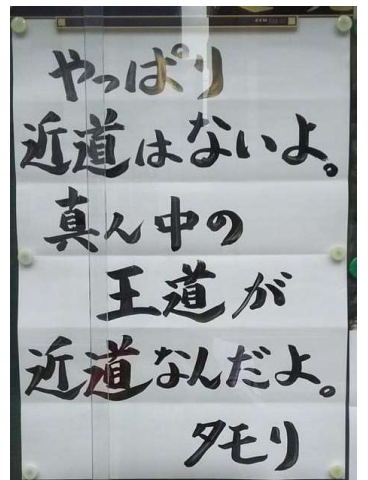 やっぱり
近道はないよ。
真ん中の
王道が
近道なんだよ。
タモリ